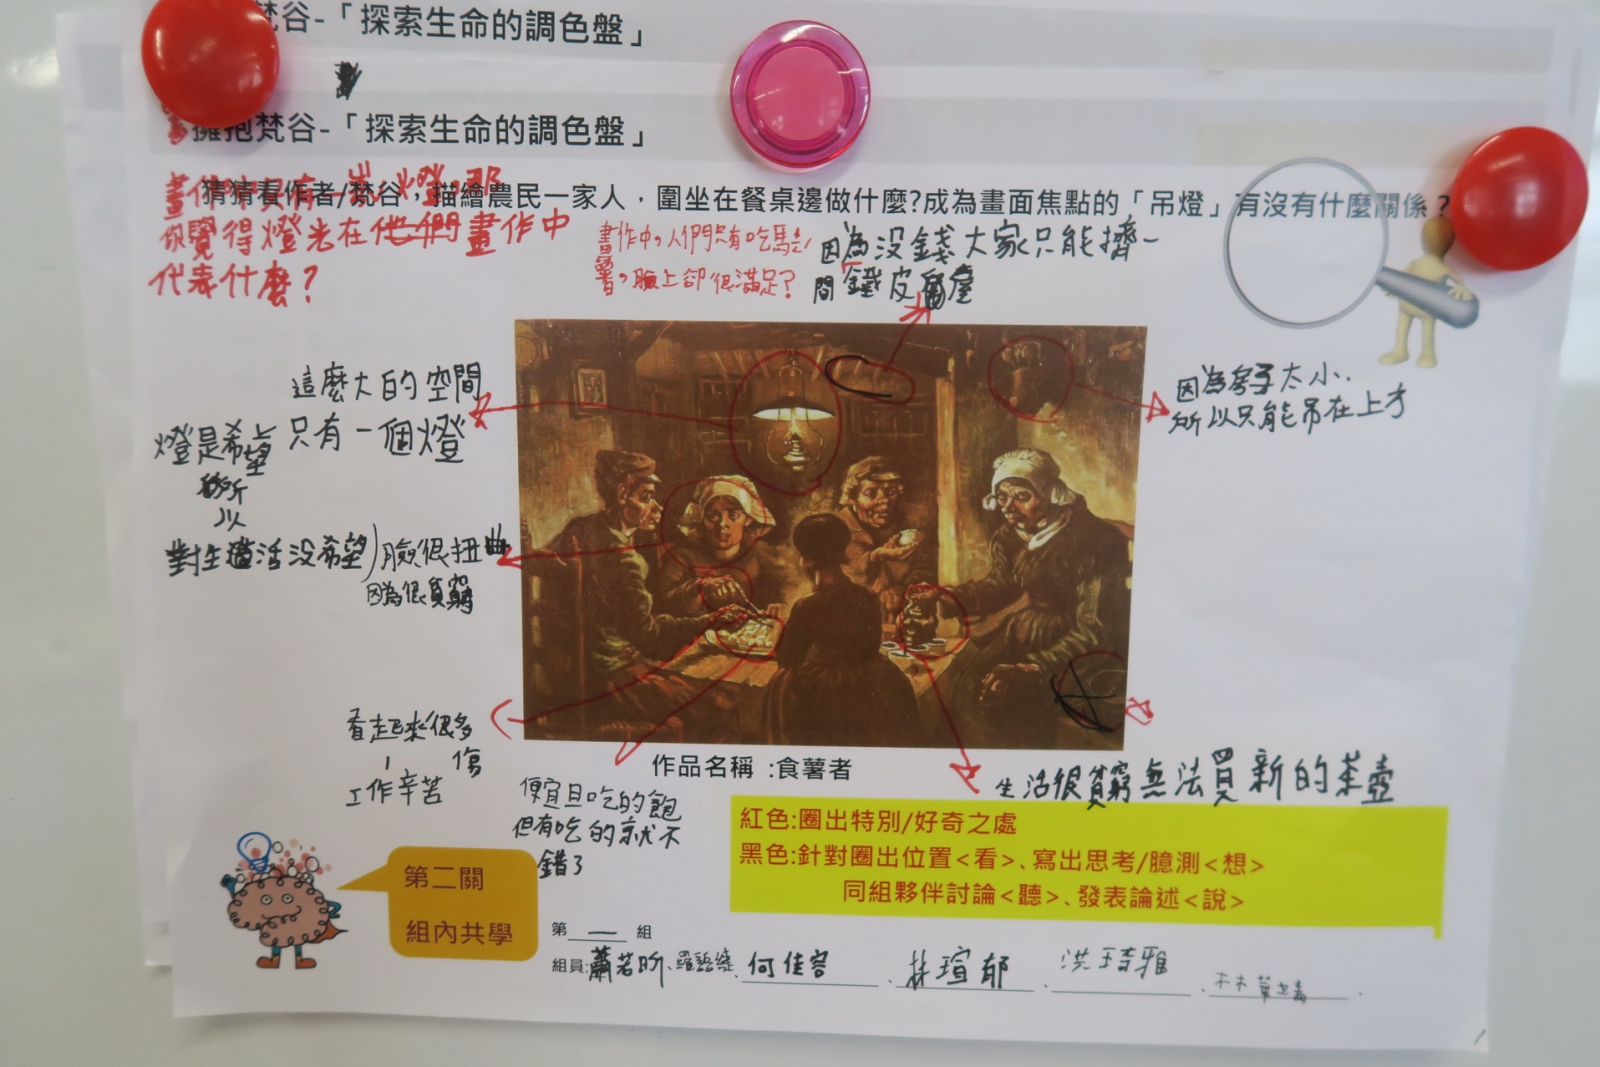 梵谷-「探索生命的調色盤」
擁抱梵谷-「探索生命的調色盤」
猜猜看作者/梵谷，描繪農民一家人，圍坐在餐桌邊做什麼?成為畫面焦點的「吊燈」有沒有什麼關係？
畫作中只有一盞燈，那
你覺得燈光在他們畫作中
代表什麼?
畫作中，人們只有吃馬鈴
薯，臉上卻很滿足?
因為沒錢大家只能擠一
間鐵皮屋
這麼大的空間
只有一個燈
燈是希望
所以
對生活沒希望
臉很扭曲
因為很貧窮
因為房子太小.
所以只能吊在上方
看起來很多
傷
工作辛苦
便宜且吃的飽
但有吃的就不
錯了
作品名稱 :食薯者
生活很貧窮無法買新的茶壺
紅色:圈出特別/好奇之處
黑色:針對圈出位置<看>、寫出思考/臆測<想>
同組夥伴討論<聽>、發表論述<說>
第二關
組內共學
第一組
組員:蕭若昕、何佳容、林瑄郁、洪琦雅、